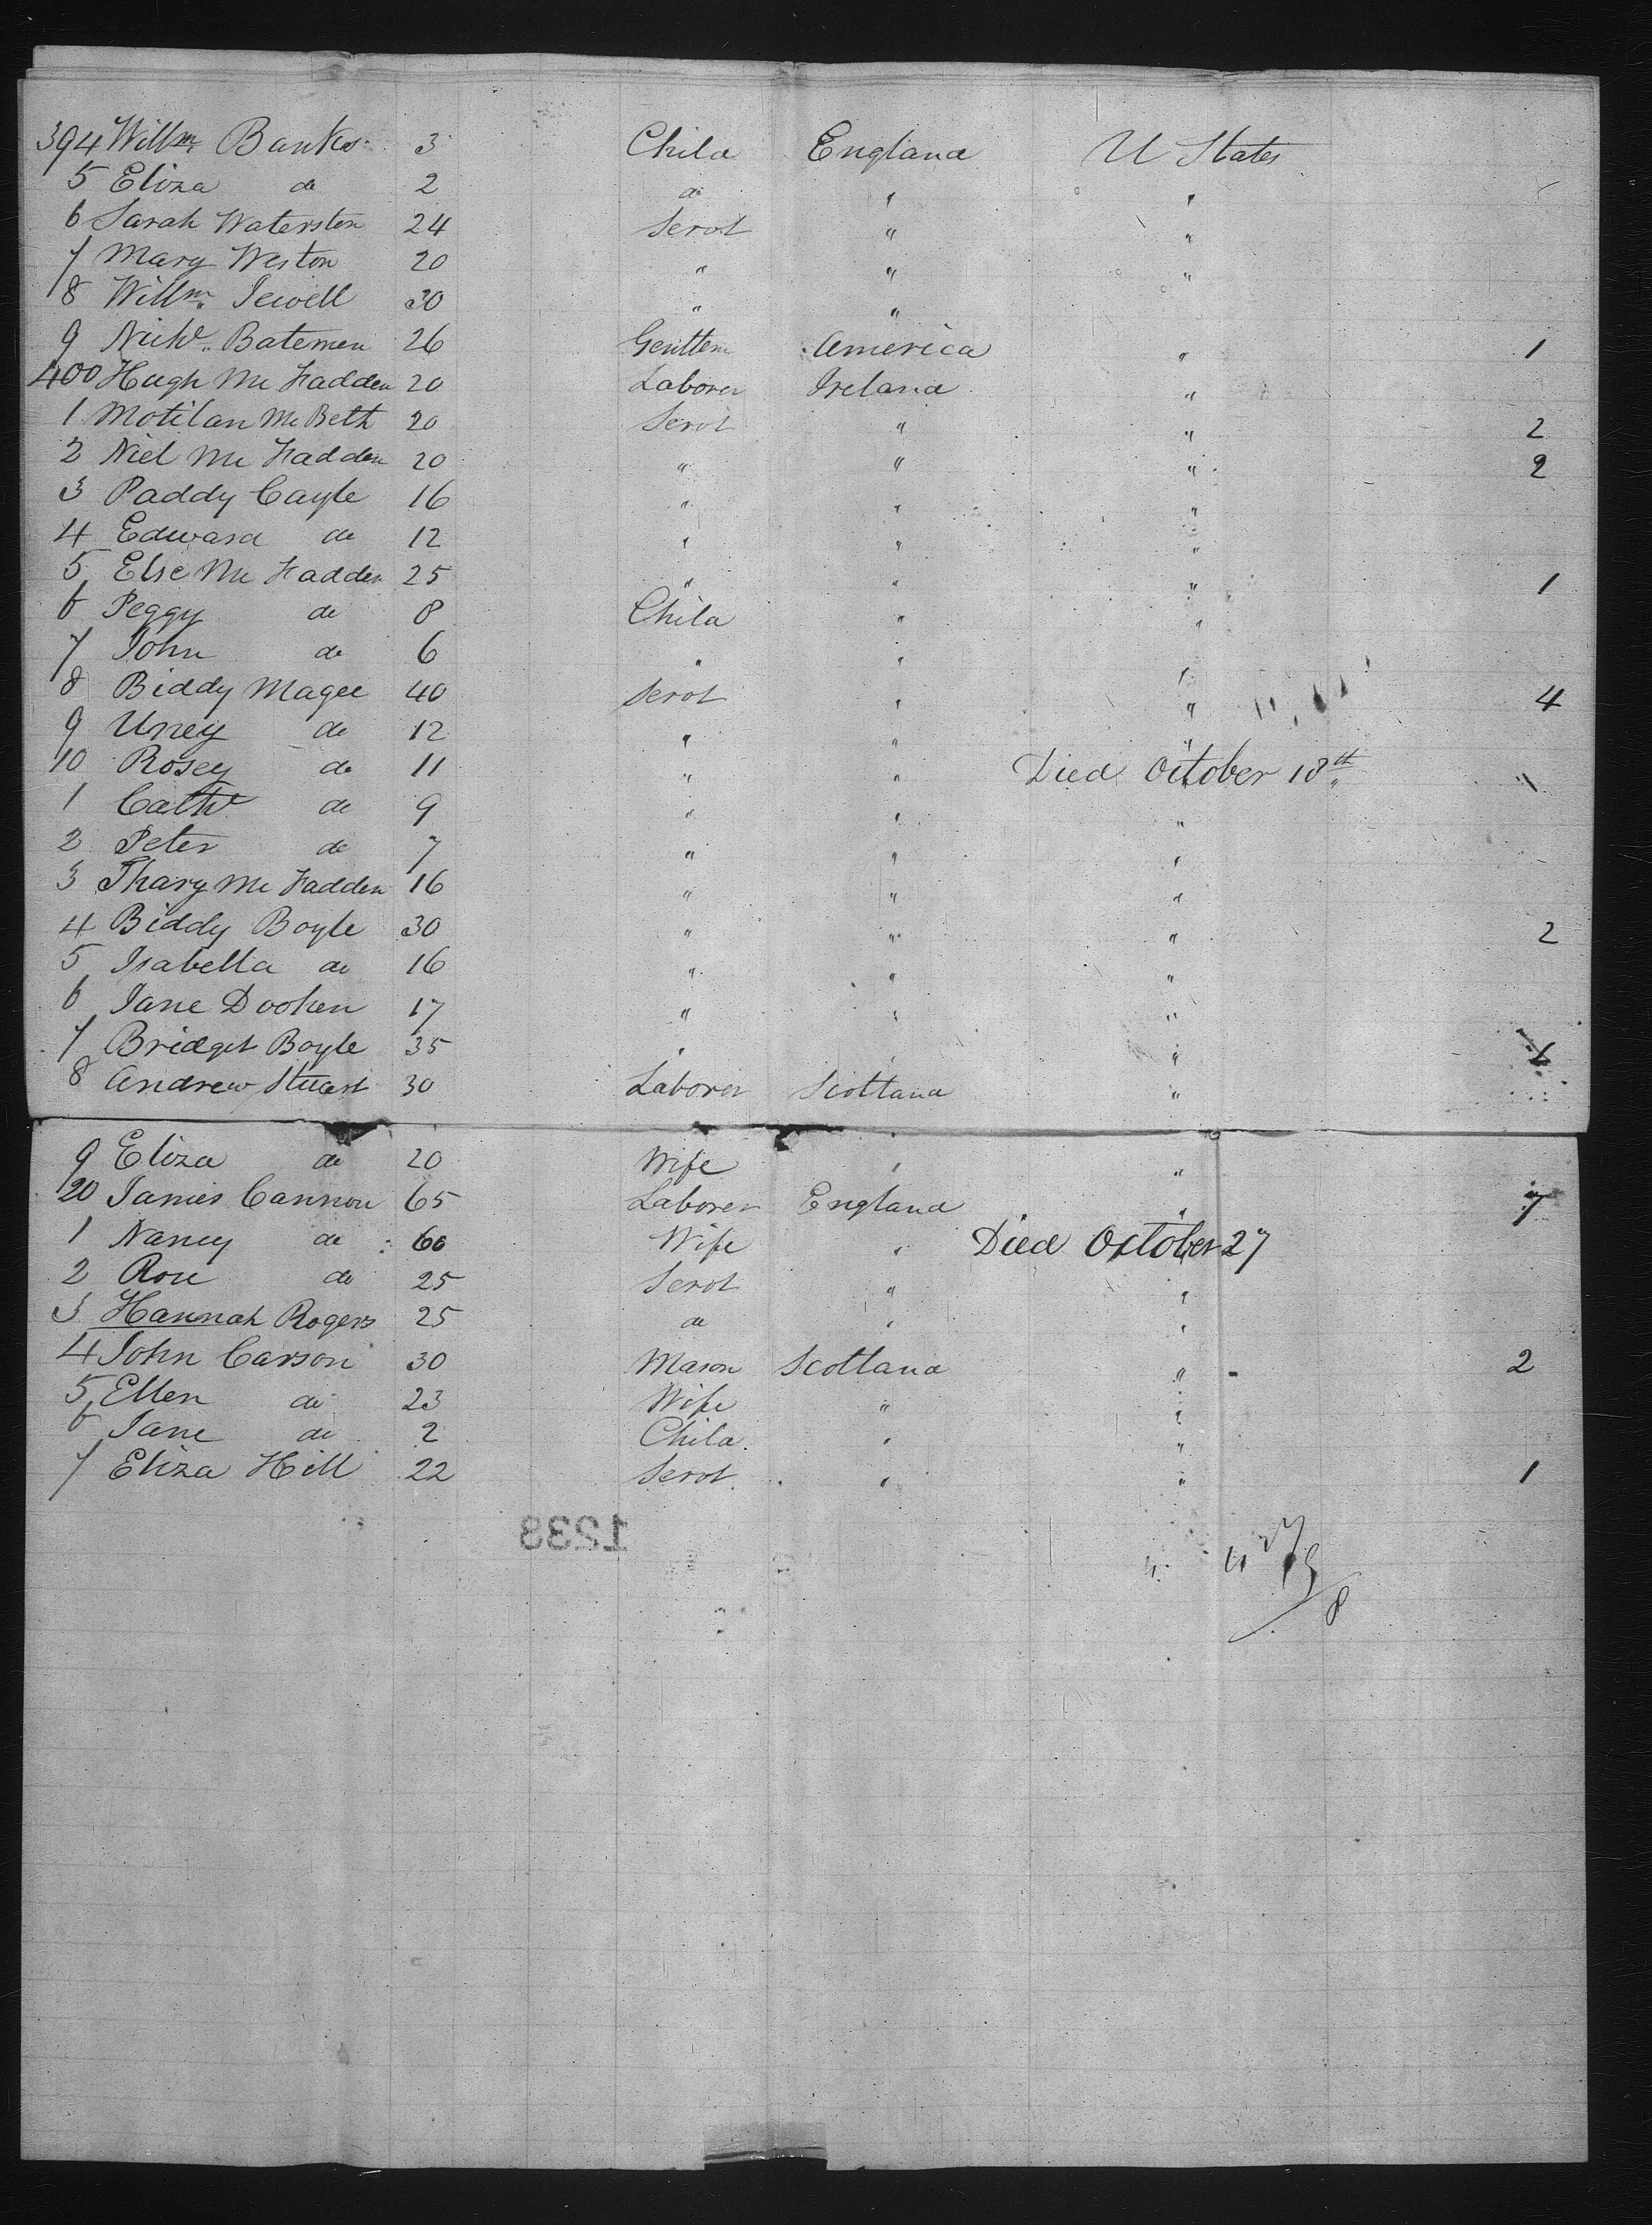 394 Willm Banks 3 Child England U States
5 Eliza do 2 do " "
6 Sarah Waterston 24 Servt " "
7 Mary Weston 20 " " "
8 Willm. Jewell 30 " "
9 Nichs. Batemen 26 Gentlem America " 1
400 Hugh Mc Fadden 20 Laborer Ireland "
1 Motilan Mc Beth 20 Servt " " 2
2 Niel Mc Fadden 20 " " " 2
3 Paddy Cayle 16 " " "
4 Edward do 12 " " "
5 Else Mc Fadden 25 " " " 1
6 Peggy do 8 Child " "
7 John do 6 " " "
8 Biddy Magee 40 Servt " " 4
9 Uney do 12 " " "
10 Rosey do 11 " " Died October 18th
1 Cathe do 9 " " "
2 Peter do 7 " " "
3 Thary Mc Fadden 16 " " "
4 Biddy Boyle 30 " " " 2
5 Isabella do 16 " " "
6 Jane Doohen 17 " " "
7 Bridget Boyle 35 " " "
8 Andrew Stuart 30 Laborer Scotland "
9 Eliza do 20 Wife " "
20 James Cannon 65 Laborer England " 7
1 Nancy do 60 Wife " Died October 27
2 Rose do 25 Servt " "
3 Hannah Rogers 25 do " "
4 John Carson 30 Mason Scotland " 2
5 Ellen do 23 Wife " "
6 Jane do 2 Child " "
7 Eliza Hill 22 Servt " " 1
1238